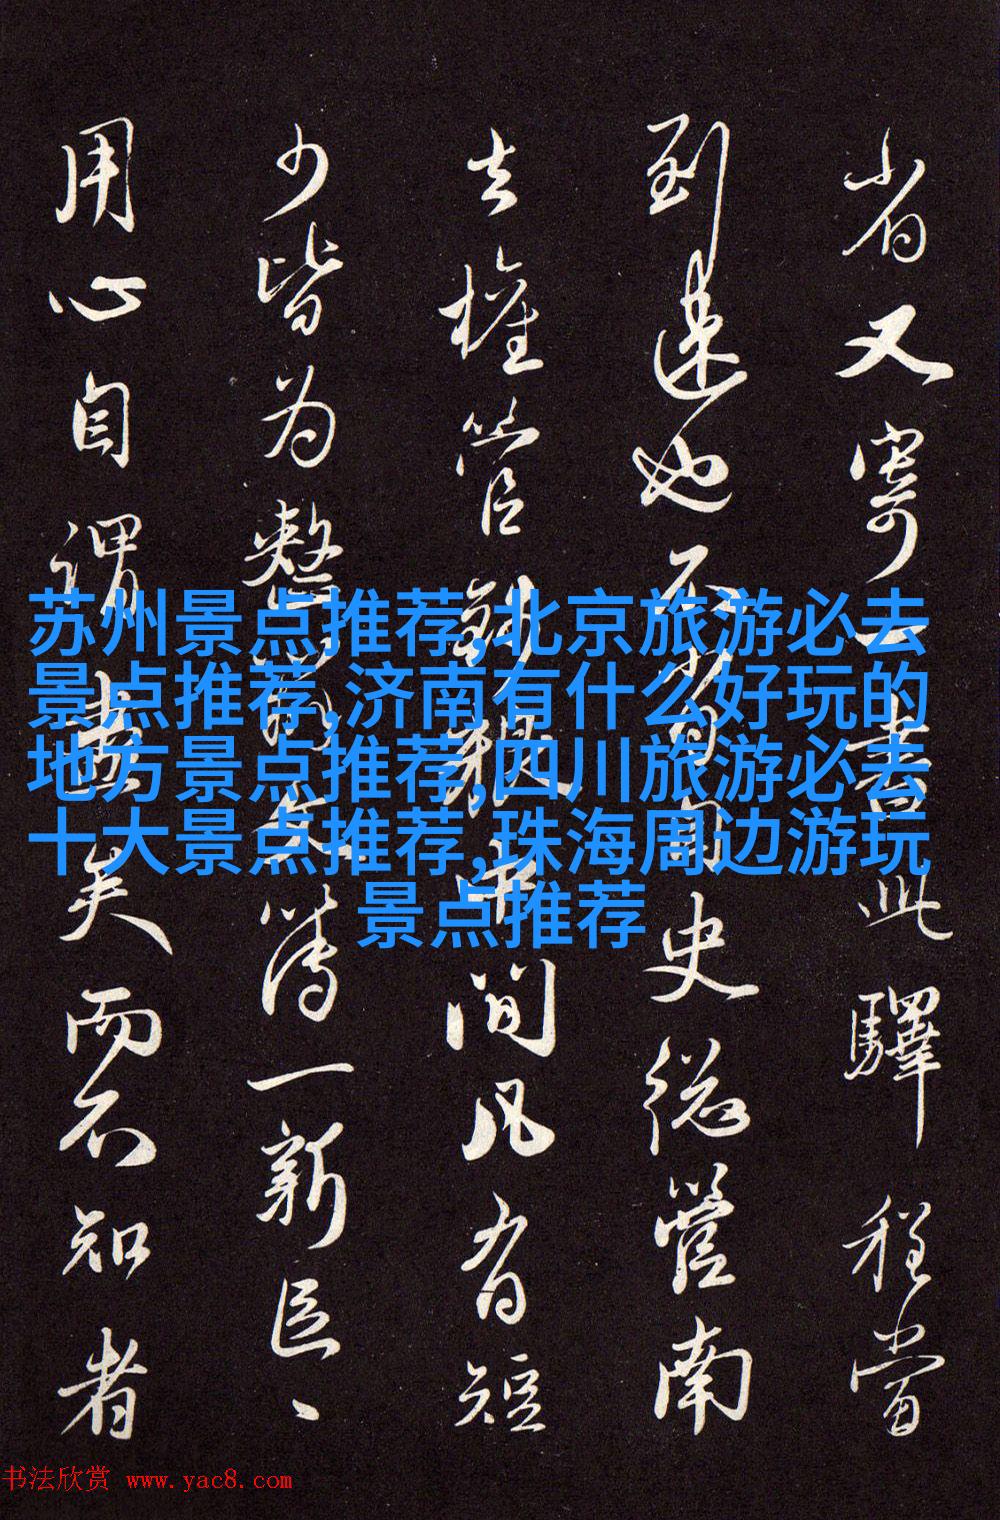 省又寄一書此驛程當
到速也不省自史從營南
去權管
間凡有短
少皆为整
文簿一新臣、
用心自謂盡矣而不知者
苏州景点推荐,北京旅游必去
景点推荐,济南有什么好玩的
地方景点推荐,四川旅游必去
十大景点推荐,珠海周边游玩
景点推荐
书法欣赏 www.yac8.com